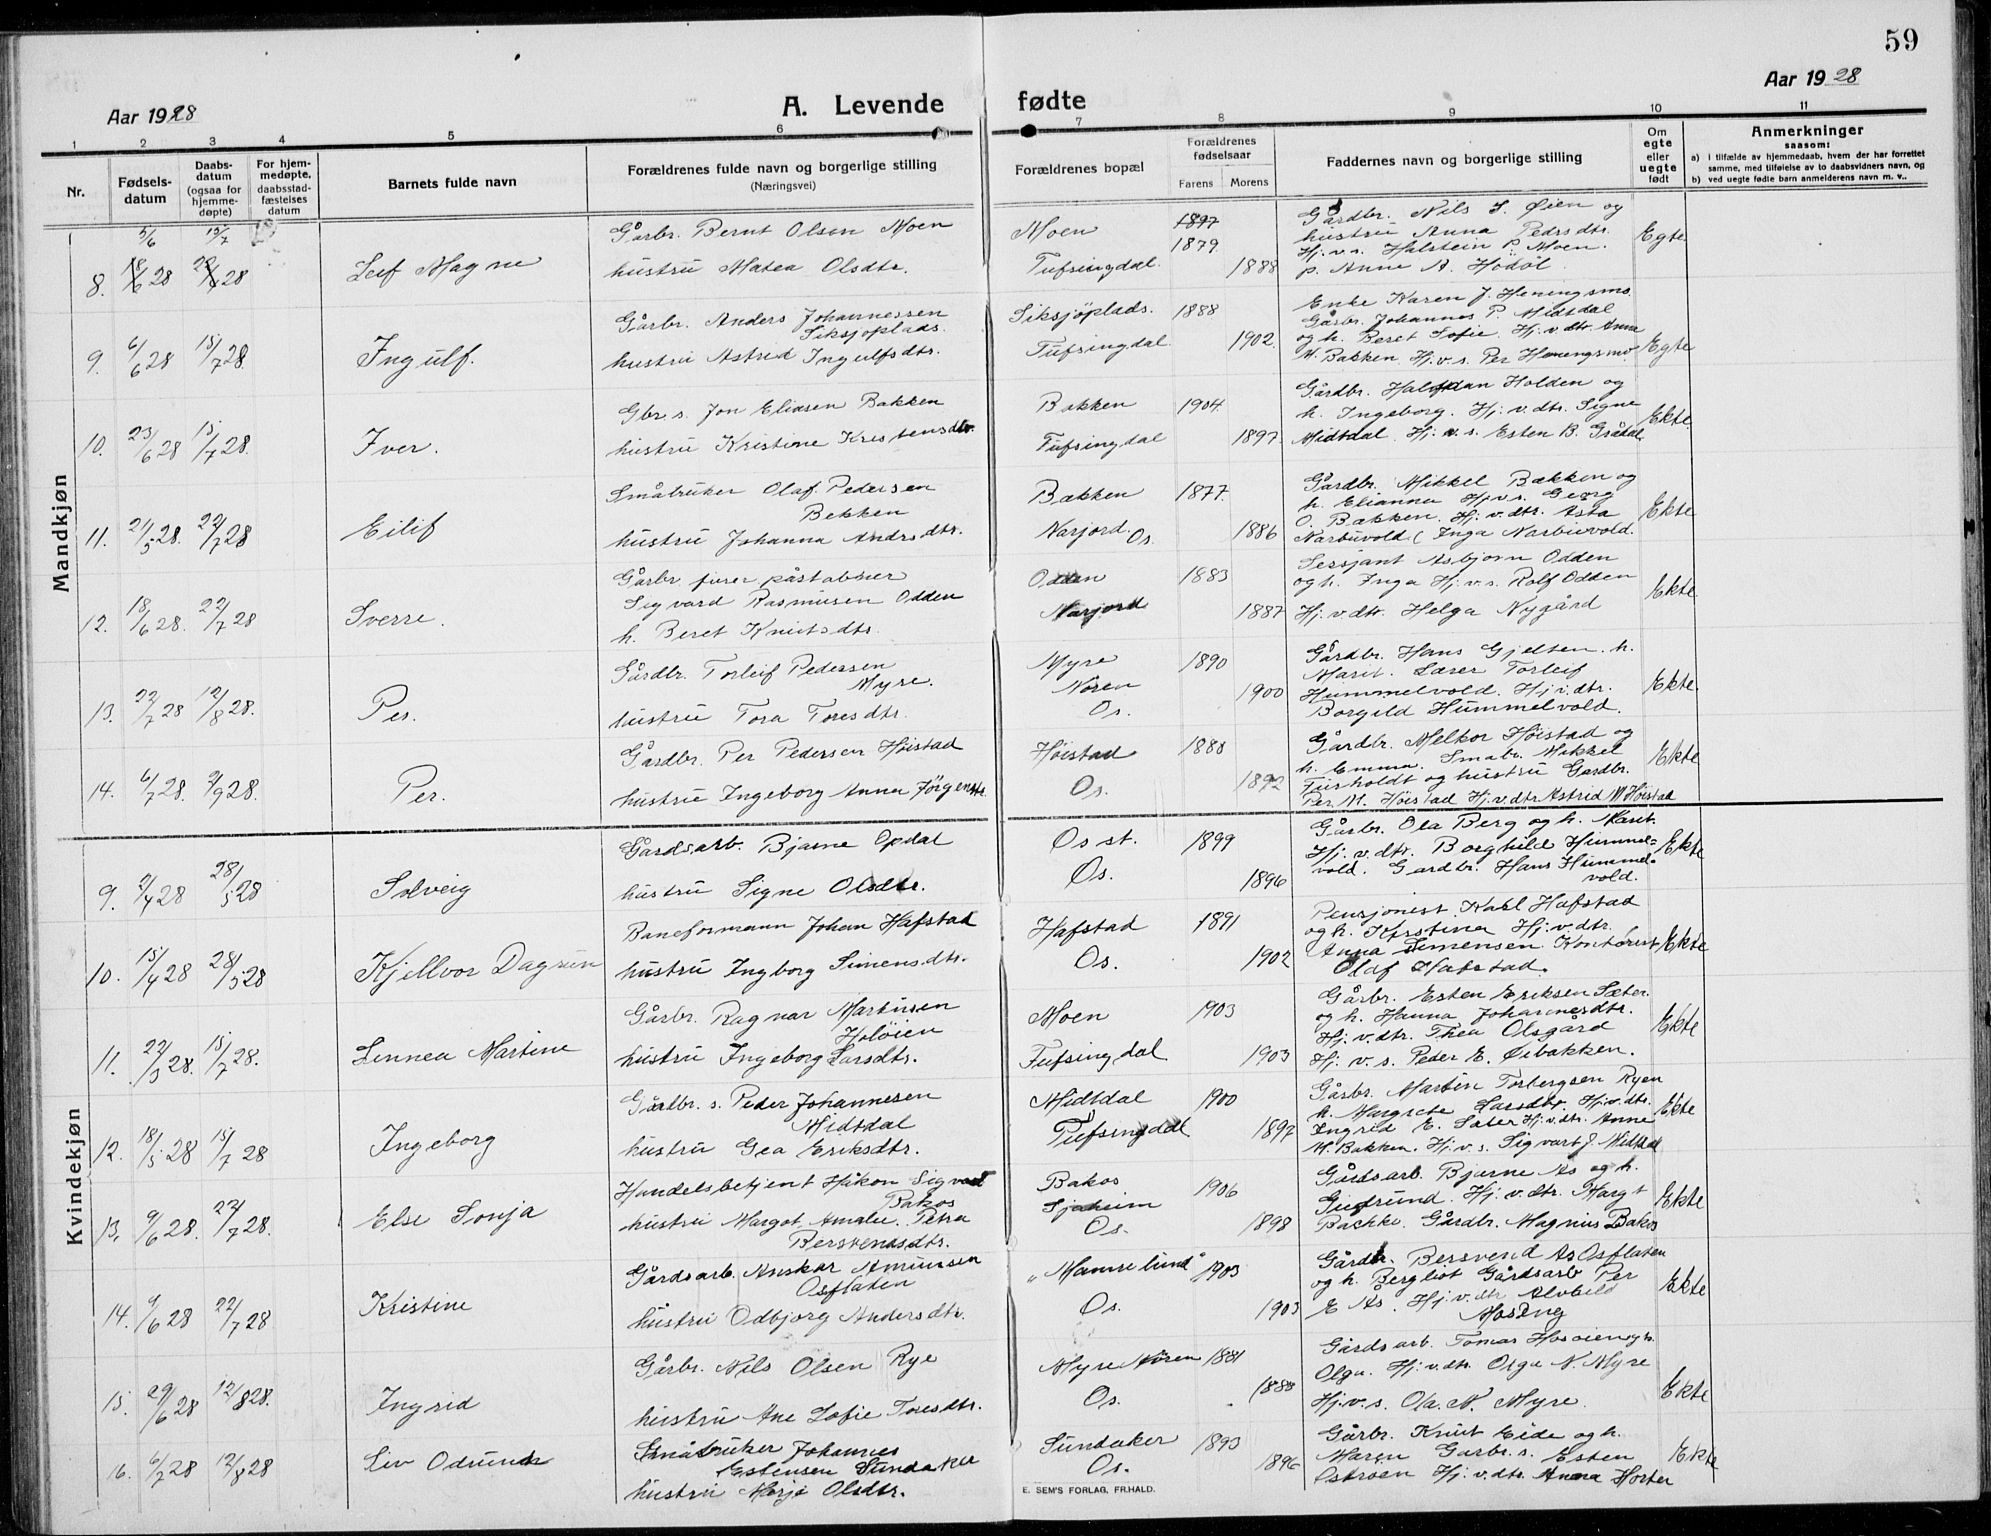 59
Aar 1928
A. Levende fødte
Aar 1928
1 2 3 4 5 6 7 8 9 10 11
Nr.
Fødsels-
datum
Daabs-
datum
(ogsaa for
hjemme-
døpte)
For hjem-
medøpte,
daabsstad-
fæstelses
datum
Barnets fulde navn
Forældrenes fulde navn og borgerlige stilling
(Næringsvei)
Forældrenes bopæl
Forældrenes
fødselsaar
Farens Morens
Faddernes navn og borgerlige stilling
Om
egte
eller
uegte
født
Anmerkninger
saasom:
a) i tilfælde av hjemmedaab, hvem der har forrettet
samme, med tilføielse av to daabsvidners navn, og
b) ved uegte fødte barn anmelderens navn m. v..
Mandkjøn
5/6 15/7
8. 28 28 Leif Magne
Gårbr. Bernt Olsen Moen
hustru Matea Olsdtr.
Moen 1897
1879
Tufsingdal 1888
Gårdbr. Nils S. Øien og
hustru Anna Pedrsdtr.
Hj. v. s. Halstein P. Moen.
p. Anne A. Hodøl.
Egte
9. 6/6 28 15/7 28. Ingulf.
Gårbr. Anders Johannessen
Siksjøplads.
hustru Astrid Ingulfsdtr.
Siksjöplads. 1888
Tufsingdal 1902.
Enke Karen J. Heningsmo.
Gårbr. Johannes P. Midtdal
og h. Beret Sofie. Hj. v. dtr. Anna
M. Bakken Hj. v. s. Per Heningsmo
Egte
10. 23/6 28 15/7 28. Iver.
Gbr. s. Jon Eliasen Bakken
hustru Kristine Kristensdtr.
Bakken 1904.
Tufsingdal 1897.
Gårdbr. Halfdan Holden og
h. Ingeborg. Hj. v. dtr. Signe
Midtdal. Hj. v. s. Esten B. Grådal
Ekte
11. 21/5 28. 22/7 28 Eilif
Småbruker Olaf Pedersen
Bekken
hustru Johanna Andrsdtr.
Bækken 1877.
Narjord. Os. 1886
Gårdbr. Mikkel Bækken og
h. Elianna Hj. v. s. Georg
O. Bækken. Hj. v. dtr. Asta
Narbuvold. ( Inga Narbuvold.
Ekte
12. 18/6 28. 22/7 28 Sverre.
Gårbr.
Sigvard Rasmusen Odden
h. Beret Knutsdtr.
Odden 1883
Narjord 1887
Sersjant Asbjørn Odden
og h. Inga Hj. v. s. Rolf Odden
Hj. v dtr. Helga Nygård
Ekte
13. 22/7 28 12/8 28. Per.
Gårdbr. Torleif Pedersen
Myre.
hustru Tora Toresdtr.
Myre 1890
Nören 1900
Os.
Gårdbr. Hans Gjelten. h.
Marit. Lærer Torleif
Hummelvold. Hj. v. dtr.
Borgild Hummelvold.
Ekte.
14. 6/7 28. 2/9 28. Per.
Gårdbr. Per Pedersen Høistad
hustru Ingeborg Anna Jørgensdtr.
Høistad 1888
Os. 1892
Gårdbr. Melkor Høistad og
h. Emma. Småbr. Mikkel
og hustru Gardbr.
Per M. Høistad Hj. v. dtr Astrid M Høistad
Ekte
Kvindekjøn
9. 2/4 28 28/5 28 Solveig
Gårdsarb. Bjarne Opdal
hustru Signe Olsdtr.
Os st. 1899
Os. 1896
Gårbr. Ola Berg og h. Marit.
Hj. v. dtr. Borghilde Hummel-
vold. Gardbr. Hans Hummel-
vold.
Ekte
10. 15/4 28 28/5 28 Kjellvor Dagrun
Baneformann Johan Hafstad
hustru Ingborg Simensdtr.
Hafstad 1891
Os. 1902
Pensjonist Karl Hafstad
og h. Kirstina Hj. v. dtr.
Anna Simensen Kontorist
Olaf Hafstad.
Ekte
11. 22/3 28. 15/7 28. Linnea Martine
Gårbr. Ragnar Martinsen
Holøien
hustru Ingeborg Larsdtr.
Moen 1903
Tufsingdal 1903
Gårbr. Esten Eriksen Sæter.
og h. Hanna Johannesdtr.
Hj. v. dtr. Thea Olsgård
Hj. v. s. Peder E. Øibakken.
Ekte
12. 18/5 28 15/7 28 Ingeborg
Gårdbr. s. Peder Johannesen
Midtdal
hustru Gea Eriksdtr.
Midtdal 1900
Tufsingdal 1897
Gårbr. Martin Torbergsen Ryen
h. Margrete Larsdtr. Hj. v. dtr.
Ingrid E. Sæter Hj. v. dtr. Anne
M. Bakken. Hj. v. s. Sigvart J. Midtdal
Ekte
13. 9/6 28. 22/7 28. Else Sonja
Handelsbetjent Håkon Sigvart
Bakos
hustru Margot Amalie Petra
Bersvensdtr.
Bakos 1906
Sjåheim
Os. 1898
Gårdsarb. Bjarne As og h.
Gudrund. Hj. v. dtr. Margt
Bachke. Gårdbr. Magnus Bakos
Ekte
14. 9/6 28 22/7 28 Kristine
Gårdsarb. Anskar Amunsen
Osflaten
hustru Odbjorg Andersdtr.
„Mamrelund" 1903
Os. 1903
Gårdbr. Bersvend As Osflaten
og h. Bergliot Gårdsarb Per
E Ås. Hj. v. dtr Alvhild
Moseng
Ekte
15. 29/6 28 12/8 28. Ingrid
Gårbr. Nils Olsen Rye
hustru Ane Sofie Toresdtr.
Myre Nøren 1881
Os. 1888
Gårdsarb. Tomas Hosøien og h.
Olga. Hj. v. dtr. Olga N. Myre
Hj. v. s. Ola. N. Myre.
Ekte
16. 6/7 28 12/8 28 Liv Odrund
Småbruker Johannes
Estensen Sundaker
hustru Merje Olsdtr.
Sundaker 1893
Os. 1896
Gårbr. Knut Eide og h.
Maren Garbr. s. Esten
Ostroen Hj. v. dtr. Anna Horten
Ekte
E. SEM'S FORLAG, FR.HALD.